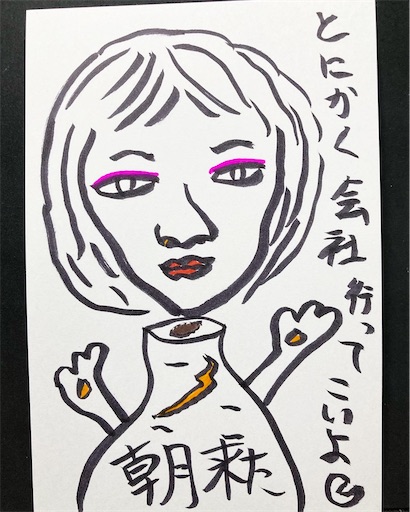 とにかく会社行ってこいよ
朝来た